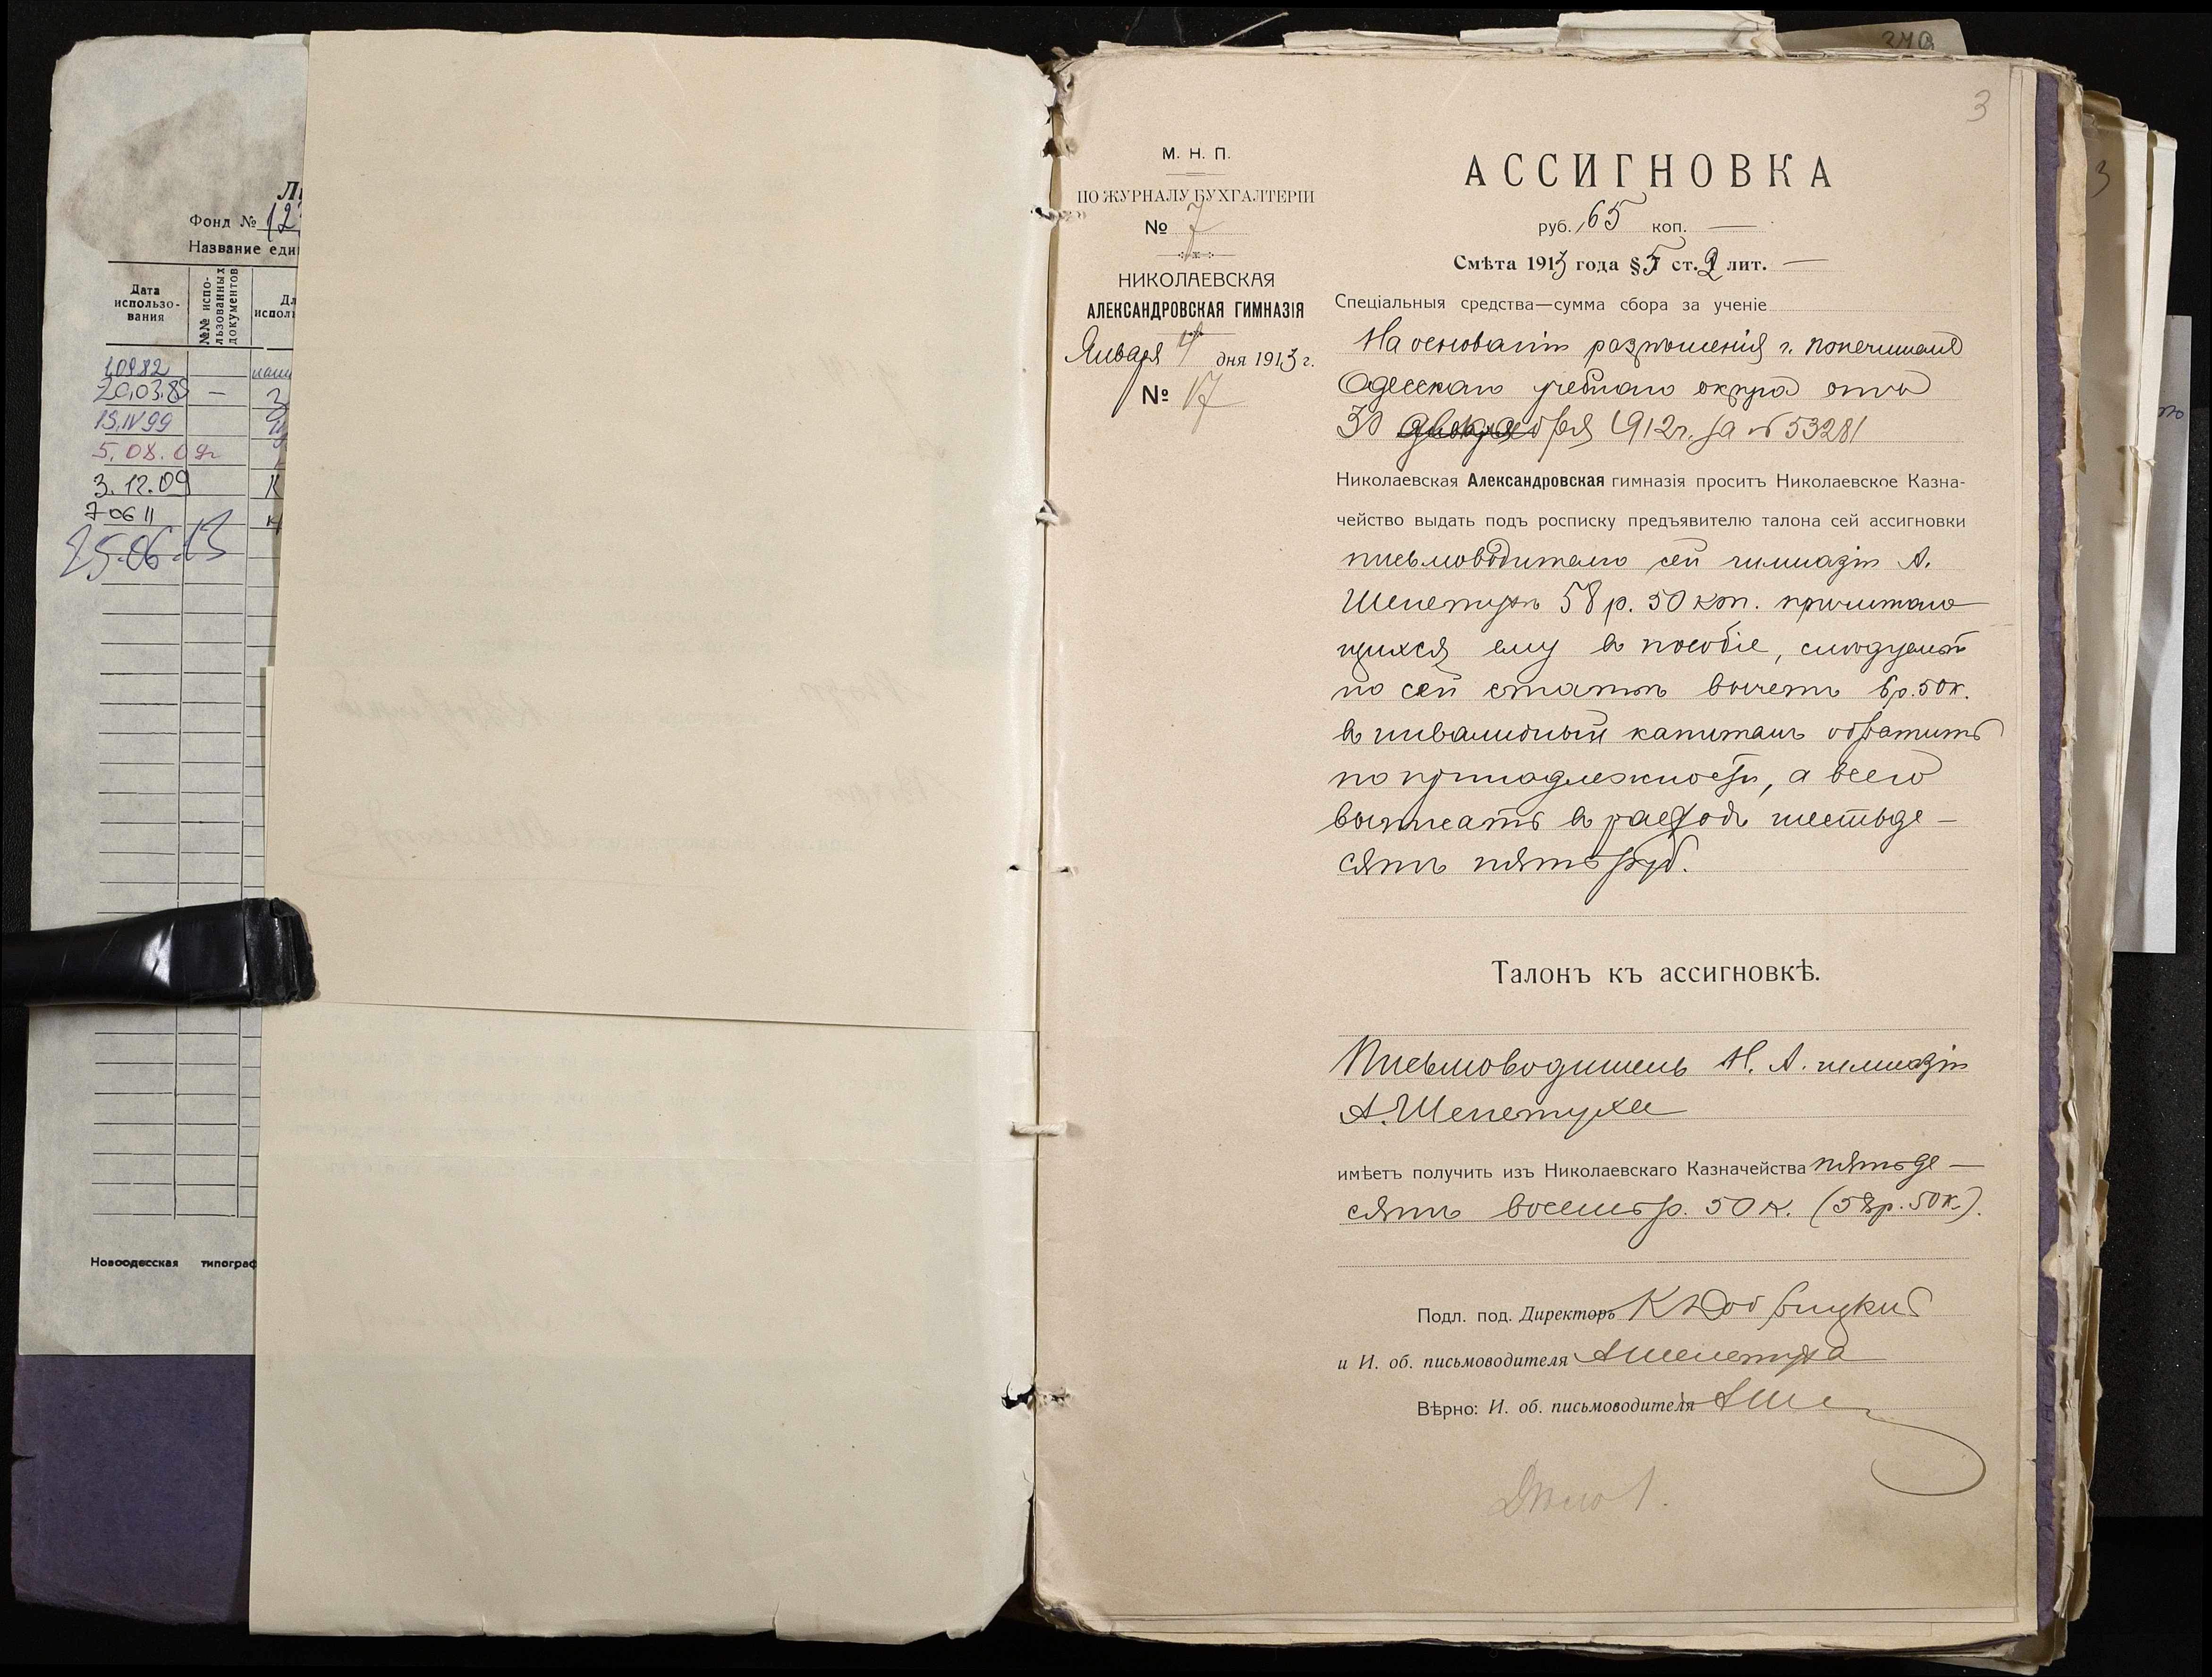 Фонд № 12
Название еди
Дата использо-вания
№№ испо-льзованных документов
10982
20.03.8
15.IV 99
5.08.09г
3.12.09
7 06 11
25.06.13
Новоодесская типограф
3
М. Н. П.
ПО ЖУРНАЛУ БУХГАЛТЕРІИ
№ 7
НИКОЛАЕВСКАЯ
АЛЕКСАНДРОВСКАЯ ГИМНАЗІЯ
Января дня 1913 г.
№ 17
АССИГНОВКА
руб. 65 коп. —
Смѣта 1913 года § 5 ст. 2 лит. —
Спеціальныя средства—сумма сбора за ученіе
На основаніи разрѣшенія г. попечителя
Одесскаго учебнаго округа отъ
30 1912 г. за № 53281
Николаевская Александровская гимназія проситъ Николаевское Казна-
чейство выдать подъ росписку предъявителю талона сей ассигновки
письмоводителю сей гимназіи А.
Шепетухѣ 58 р. 50 коп. причитаю
щихся ему въ пособіе, слѣдуемый
по сей статьѣ вычетъ 6 р. 50 к.
въ инвалидный капиталъ обратить
по принадлежности, а всего
выписать въ расходъ шестьде-
сятъ пять руб.
Талонъ къ ассигновкѣ.
Письмоводитель Н. А. гимназіи
А. Шепетуха
имѣетъ получить изъ Николаевскаго Казначейства пятьде-
сятъ восемь р. 50 к. (58 р. 50 к.).
Подл. под. Директоръ К
и И. об. письмоводителя АШепетуха
Вѣрно: И. об. письмоводителя АШе
Дѣло 1.